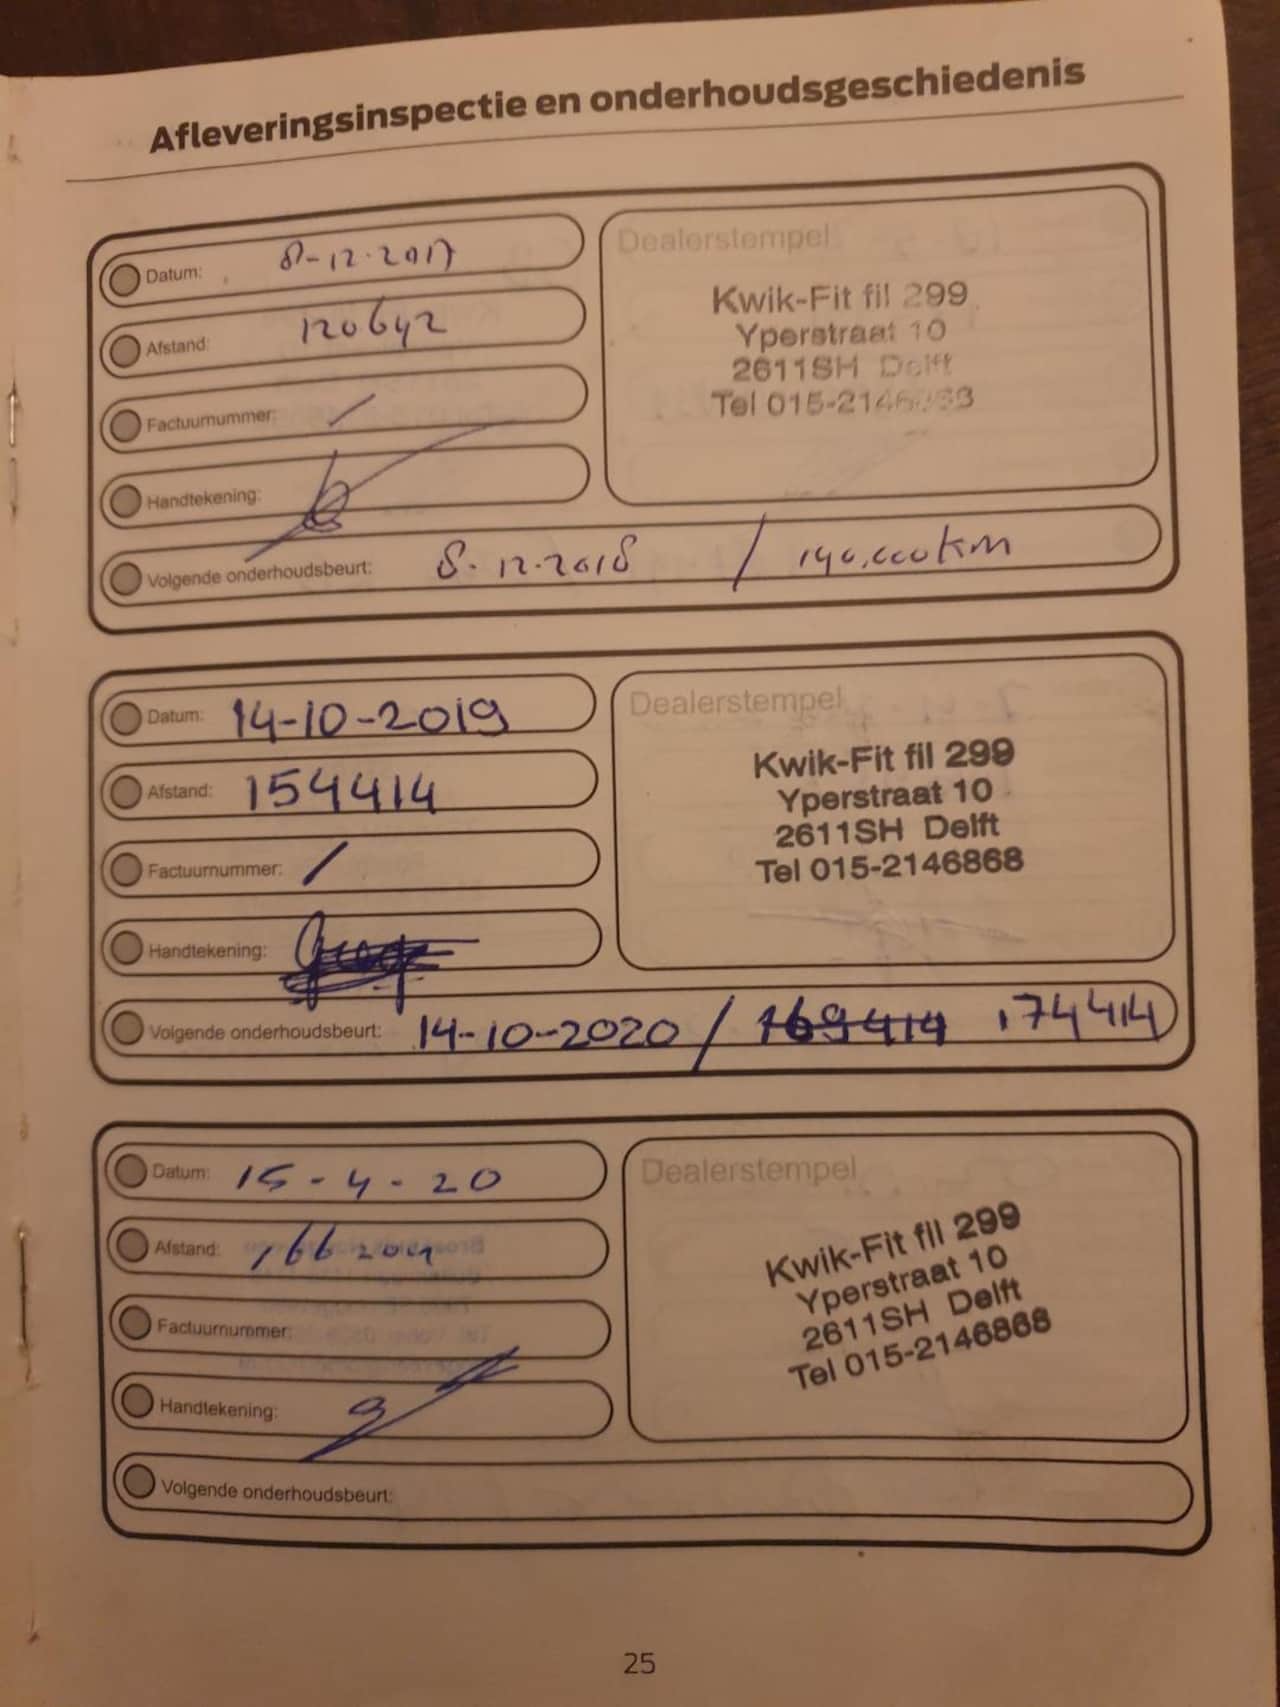 Afleveringsinspectie en onderhoudsgeschiedenis
Datum: 8-12-2017
Afstand: 120642
Factuurnummer: /
Handtekening:
Dealerstempel
Kwik-Fit fil 299
Yperstraat 10
2611SH Delft
Tel 015-2146868
Volgende onderhoudsbeurt: 8-12-2018 / 140.000km
Datum: 14-10-2019
Afstand: 154414
Factuurnummer: /
Handtekening:
Dealerstempel
Kwik-Fit fil 299
Yperstraat 10
2611SH Delft
Tel 015-2146868
Volgende onderhoudsbeurt: 14-10-2020 / 169414 174414
Datum: 15-4-20
Afstand:
Factuurnummer:
Handtekening:
Dealerstempel
Kwik-Fit fil 299
Yperstraat 10
2611SH Delft
Tel 015-2146868
Volgende onderhoudsbeurt:
25